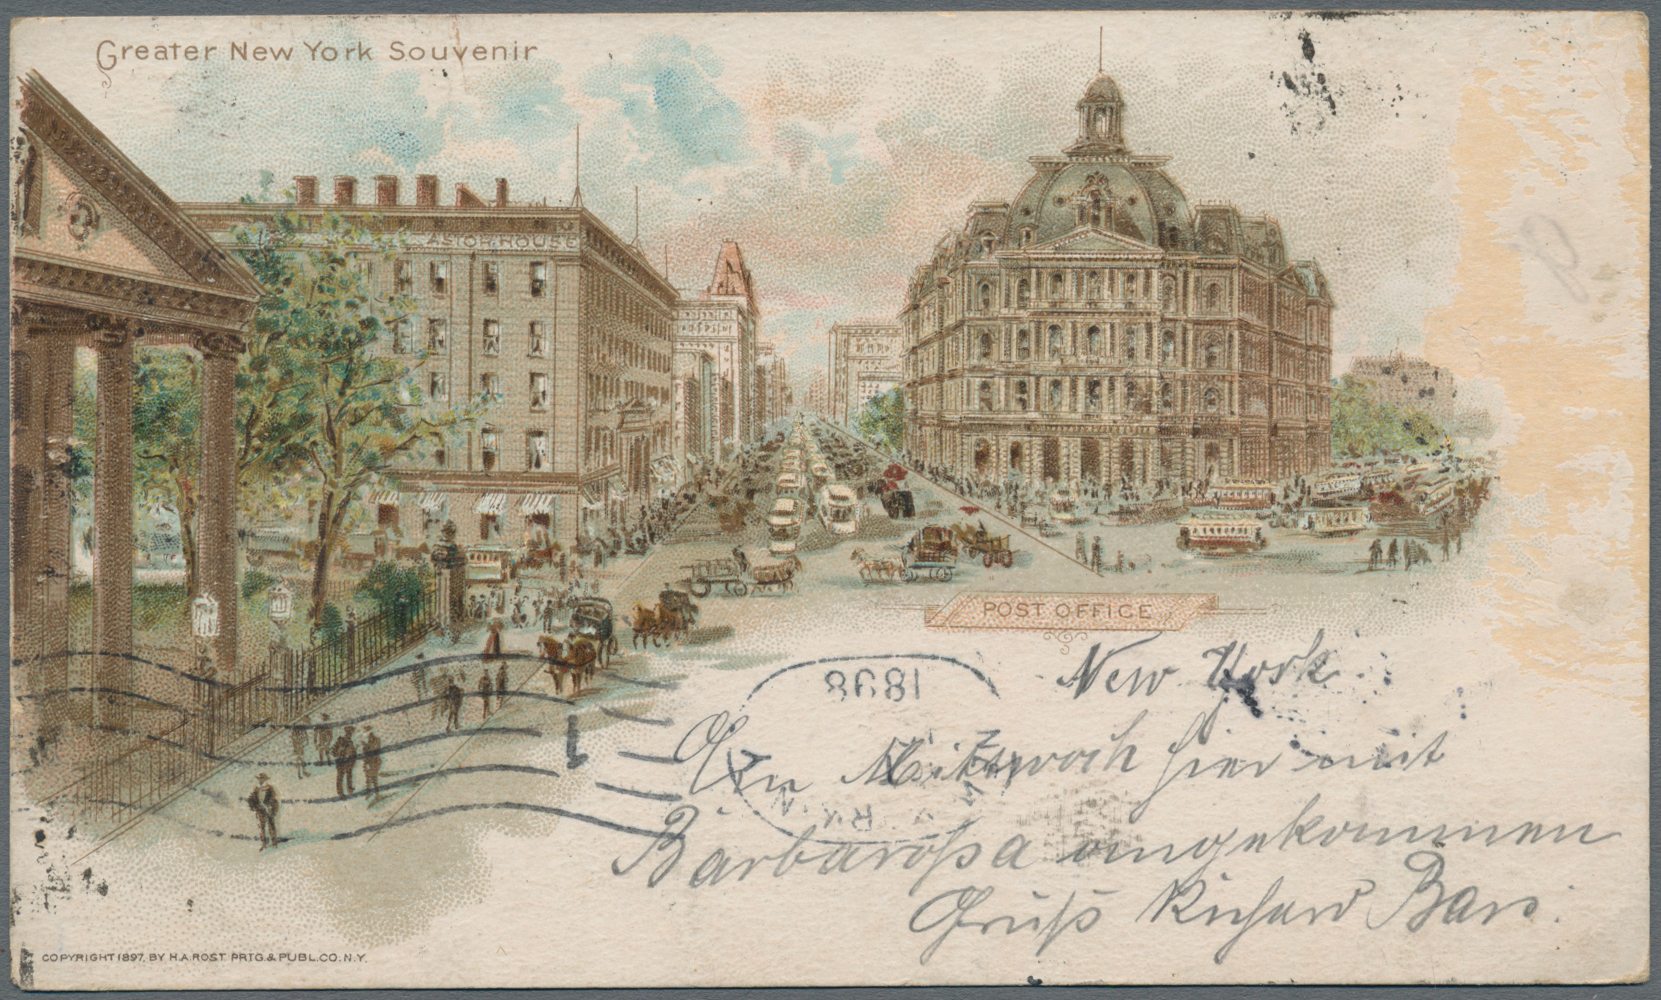 Greater New York Souvenir
ASTOR HOUSE
POST OFFICE
New York.
1898
Am Mittwoch hier mit
Barbarossa angekommen
Gruß Richard Bars.
COPYRIGHT 1897, BY H.A. ROST PRTG & PUBL. CO. N.Y.